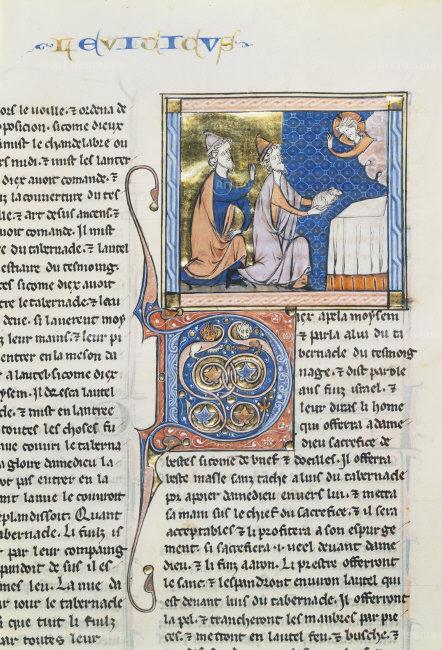 LEVITICUS
ors le voille. ⁊ ordena de
posicion. sicome dieux
mist le chandelabre ou
rs midi. ⁊ mist les lanter
diex avoit comande. ⁊
la couverture du tes
le. ⁊ art desus ancens. ⁊
voit comande. Il mist
re du tabernade. ⁊ lautel
estiaire du tesmoing.
es sicome diex avoir
tre le tabernade. ⁊ leu
deue. si laverent moy
leur mains. ⁊ leur pi
entrer en la meson du
a lautel sicome diex
ysem. Il dresca lautel
de. ⁊ mist en lantree
toutes les choses fu
nue couvri le taberna
a gloire damedieu la
pas entrer en la
nt la nue le couvroit
splandissoit. Quant
abernade. li fuilz is
par leur compaing
pandoit de sus il es
mes leu. La nue da
jour le tabernade
que tuit li fuilz
par toutes leur
iex apela moysem
⁊ parla a lui du ta
bernade du tesmoig
nage. ⁊ dist parole
aus fuiz israel. ⁊
leur diras li home
qui offerra a dame
dieu sacrefice de
bestes sicome de buef ⁊ doeilles. Il offerra
beste masle sanz tache a luis du tabernade
por apaier damedieu envers lui. ⁊ metra
sa main sus le chief du sacrefice. ⁊ il sera
acceptables ⁊ li profitera a son espurge
ment. si sacrefiera .i. veel devant dame
dieu. ⁊ li fuiz aaron. Li prestre offerront
le sanc. ⁊ lespandront environ lautel qui
est devant luis du tabernade. Il offerront
la pel. ⁊ trancheront les manbres par pie
ces. ⁊ metront en lautel feu. ⁊ busche. ⁊